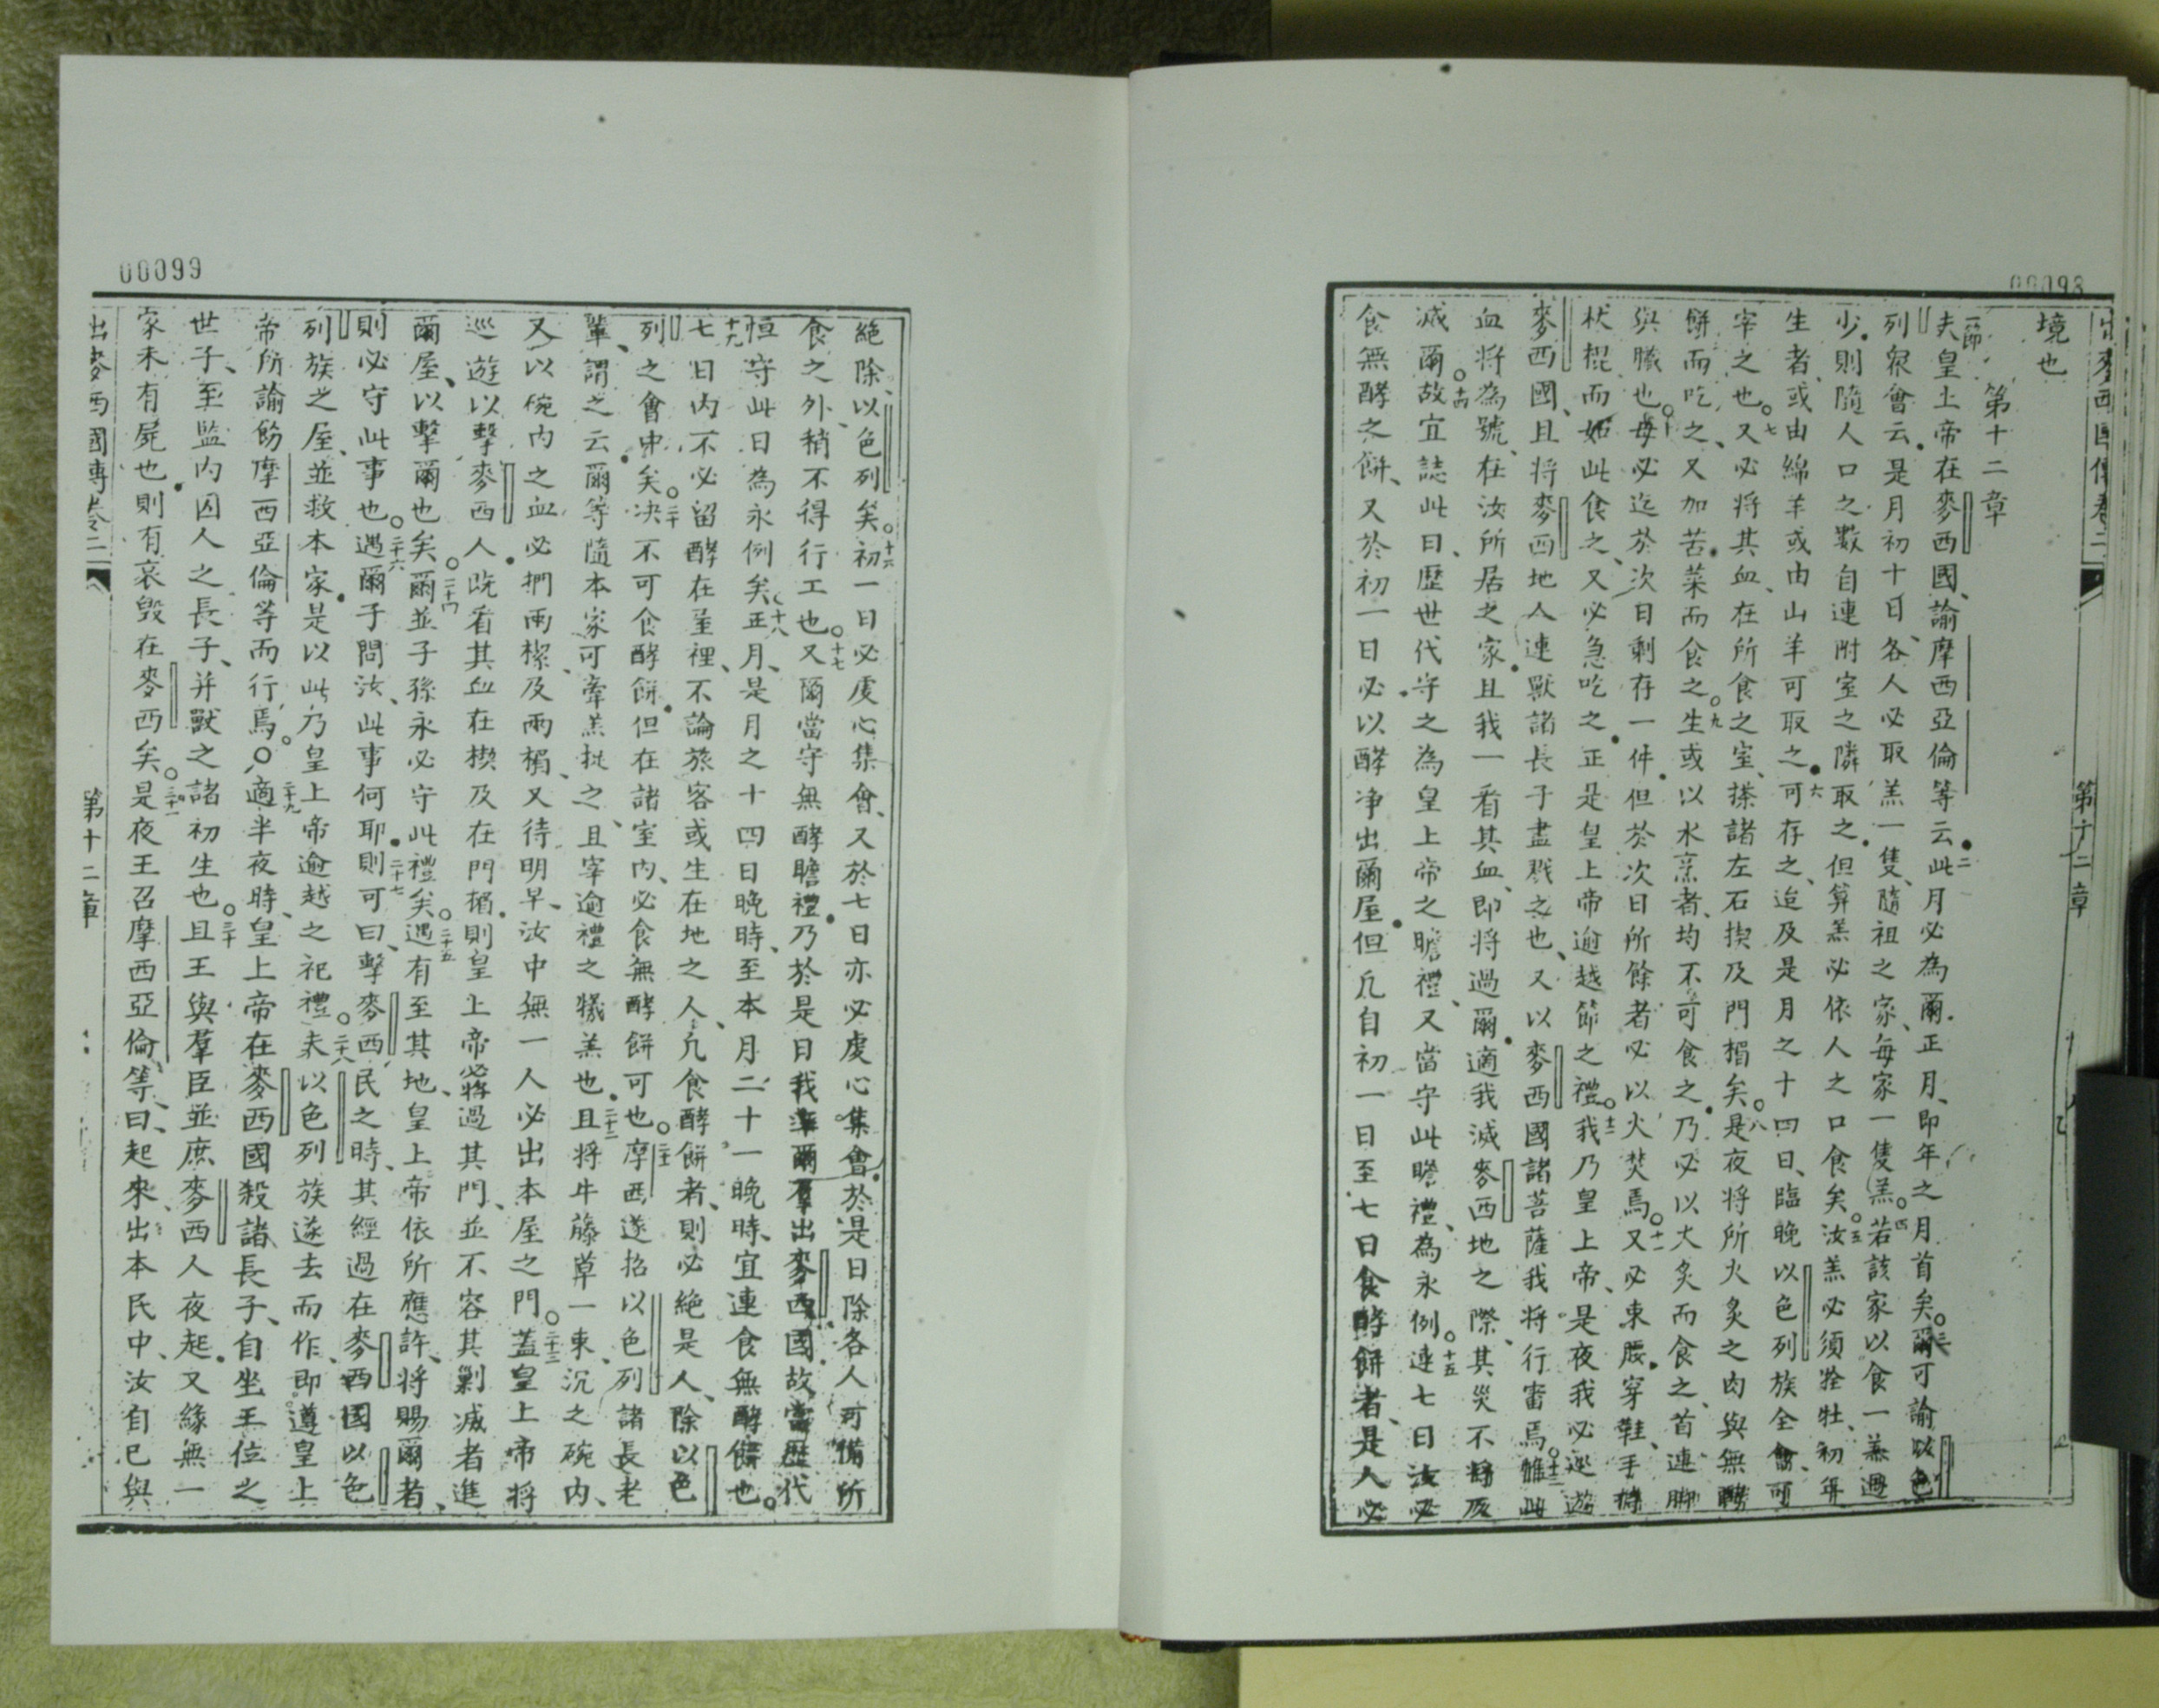 00098
出麥西國傳卷二 第十二章
境也
第十二章
一節夫皇上帝在麥西國、諭摩西亞倫等云、二此月必為爾正月、即年之月首矣。三爾可諭以色
列衆會云、是月初十日、各人必取羔一隻、隨祖之家、每家一隻羔。四若該家以食一羔過
少、則隨人口之數自連附室之隣取之、但算羔必依人之口食矣。五汝羔必須牷牡、初年
生者、或由綿羊或由山羊可取之、六可存之、迨及是月之十四日、臨晚以色列族全會可
宰之也。七又必將其血、在所食之室、搽諸左右楔及門楣矣。八是夜將所火炙之肉與無酵
餅而吃之、又加苦菜而食之。九生或以水烹者、均不可食之、乃必以火炙而食之、首連脚
與臟也。毋必迄於次日剩存一件、但於次日所餘者必以火焚焉。十一又必束腰、穿鞋、手
杖棍而如此食之、又必急吃之、正是皇上帝逾越節之禮。十二我乃皇上帝、是夜我必巡遊
麥西國、且將麥西地人連獸諸長子盡戮之也、又以麥西國諸菩薩我將行審焉。十三惟此
血將為號、在汝所居之家、且我一看其血、即將過爾、適我滅麥西地之際、其災不將及
滅爾。十四故宜誌此日、歷世代守之為皇上帝之瞻禮、又當守此瞻禮、為永例。十五連七日汝必
食無酵之餅、又於初一日必以酵净出爾屋、但凡自初一日至七日食酵餅者、是人必
00099
絕除以色列矣。十六初一日必虔心集會、又於七日亦必虔心集會、於是日除各人可備所
食之外、稍不得行工也。十七又爾當守無酵瞻禮、乃於是日我率爾羣出麥西國故當歷代
恒守此日為永例矣。十八正月、是月之十四日晚時、至本月二十一晚時、宜連食無酵餅也。
十九七日内不必留酵在室裡、不論旅客或生在地之人、凡食酵餅者、則必絕是人、除以色
列之會中矣。二十决不可食酵餅、但在諸室内、必食無酵餅可也。二十一摩西遂招以色列諸長老
輩、謂之云、爾等隨本家可牽羔挑之、且宰逾禮之犧羔也。二十二且將牛藤草一束、沉之碗内、
又以碗内之血、必捫兩楔、及兩楣、又待明早、汝中無一人必出本屋之門。二十三蓋皇上帝將
巡遊以擊麥西人、既看其血在楔及在門楣、則皇上帝必將過其門、並不容其剿滅者進
爾屋、以擊爾也矣。二十四爾並子孫永必守此禮矣。二十五遇有至其地、皇上帝依所應許、將賜爾者、
則必守此事也。二十六遇爾子問汝、此事何耶、二十七則可曰、擊麥西民之時、其經過在麥西國以色
列族之屋、並救本家、是以此乃皇上帝逾越之祀禮。二十八夫以色列族遂去而作、即遵皇上
帝所諭飭摩西亞倫等而行焉。○二十九適半夜時、皇上帝在麥西國殺諸長子、自坐王位之
世子、至監内囚人之長子、并獸之諸初生也。三十且王與羣臣並庶麥西人夜起、又緣無一
家未有屍也、則有哀毀在麥西矣。三十一是夜王召摩西亞倫等、曰、起來、出本民中、汝自己與
出麥西國傳卷二 第十二章